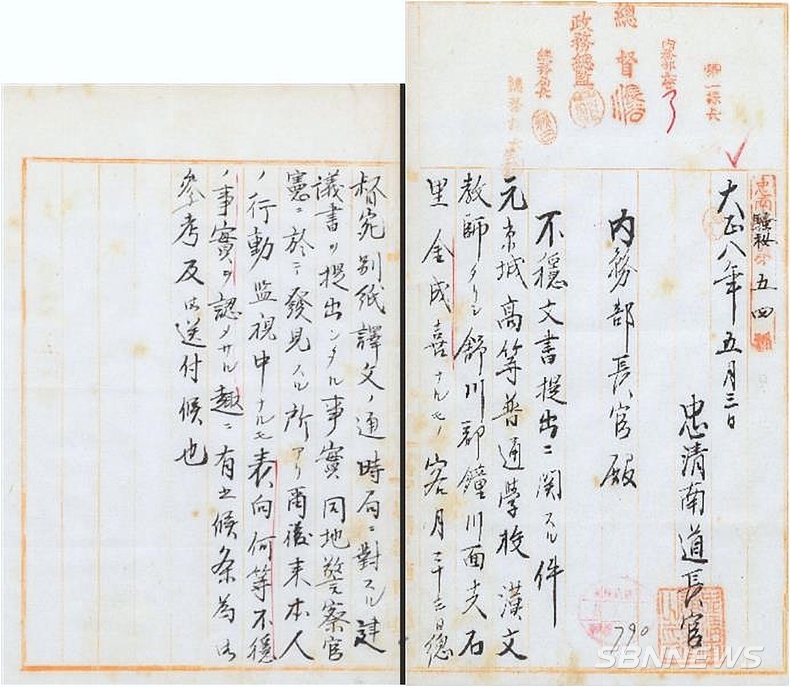 第一課長
内務部長官
總督
政務總監
總務局長
忠南騷秘第五四號
大正八年五月三日
忠清南道長官
内務部長官殿
不穩文書提出ニ関スル件
元京城高等普通學校漢文
教師タリシ舒川郡鐘川面夫石
里金成喜ナルモノ客月二十三日總
督宛別紙譯文ノ通時局ニ對スル建
議書ヲ提出シタル事實同地警察官
憲ニ於テ發見スル所アリ爾後来本人
ノ行動監視中ナルモ表向何等不穩
ノ事實ヲ認メサル趣ニ有之候条為御
参考及御送付候也
790
SBNNEWS